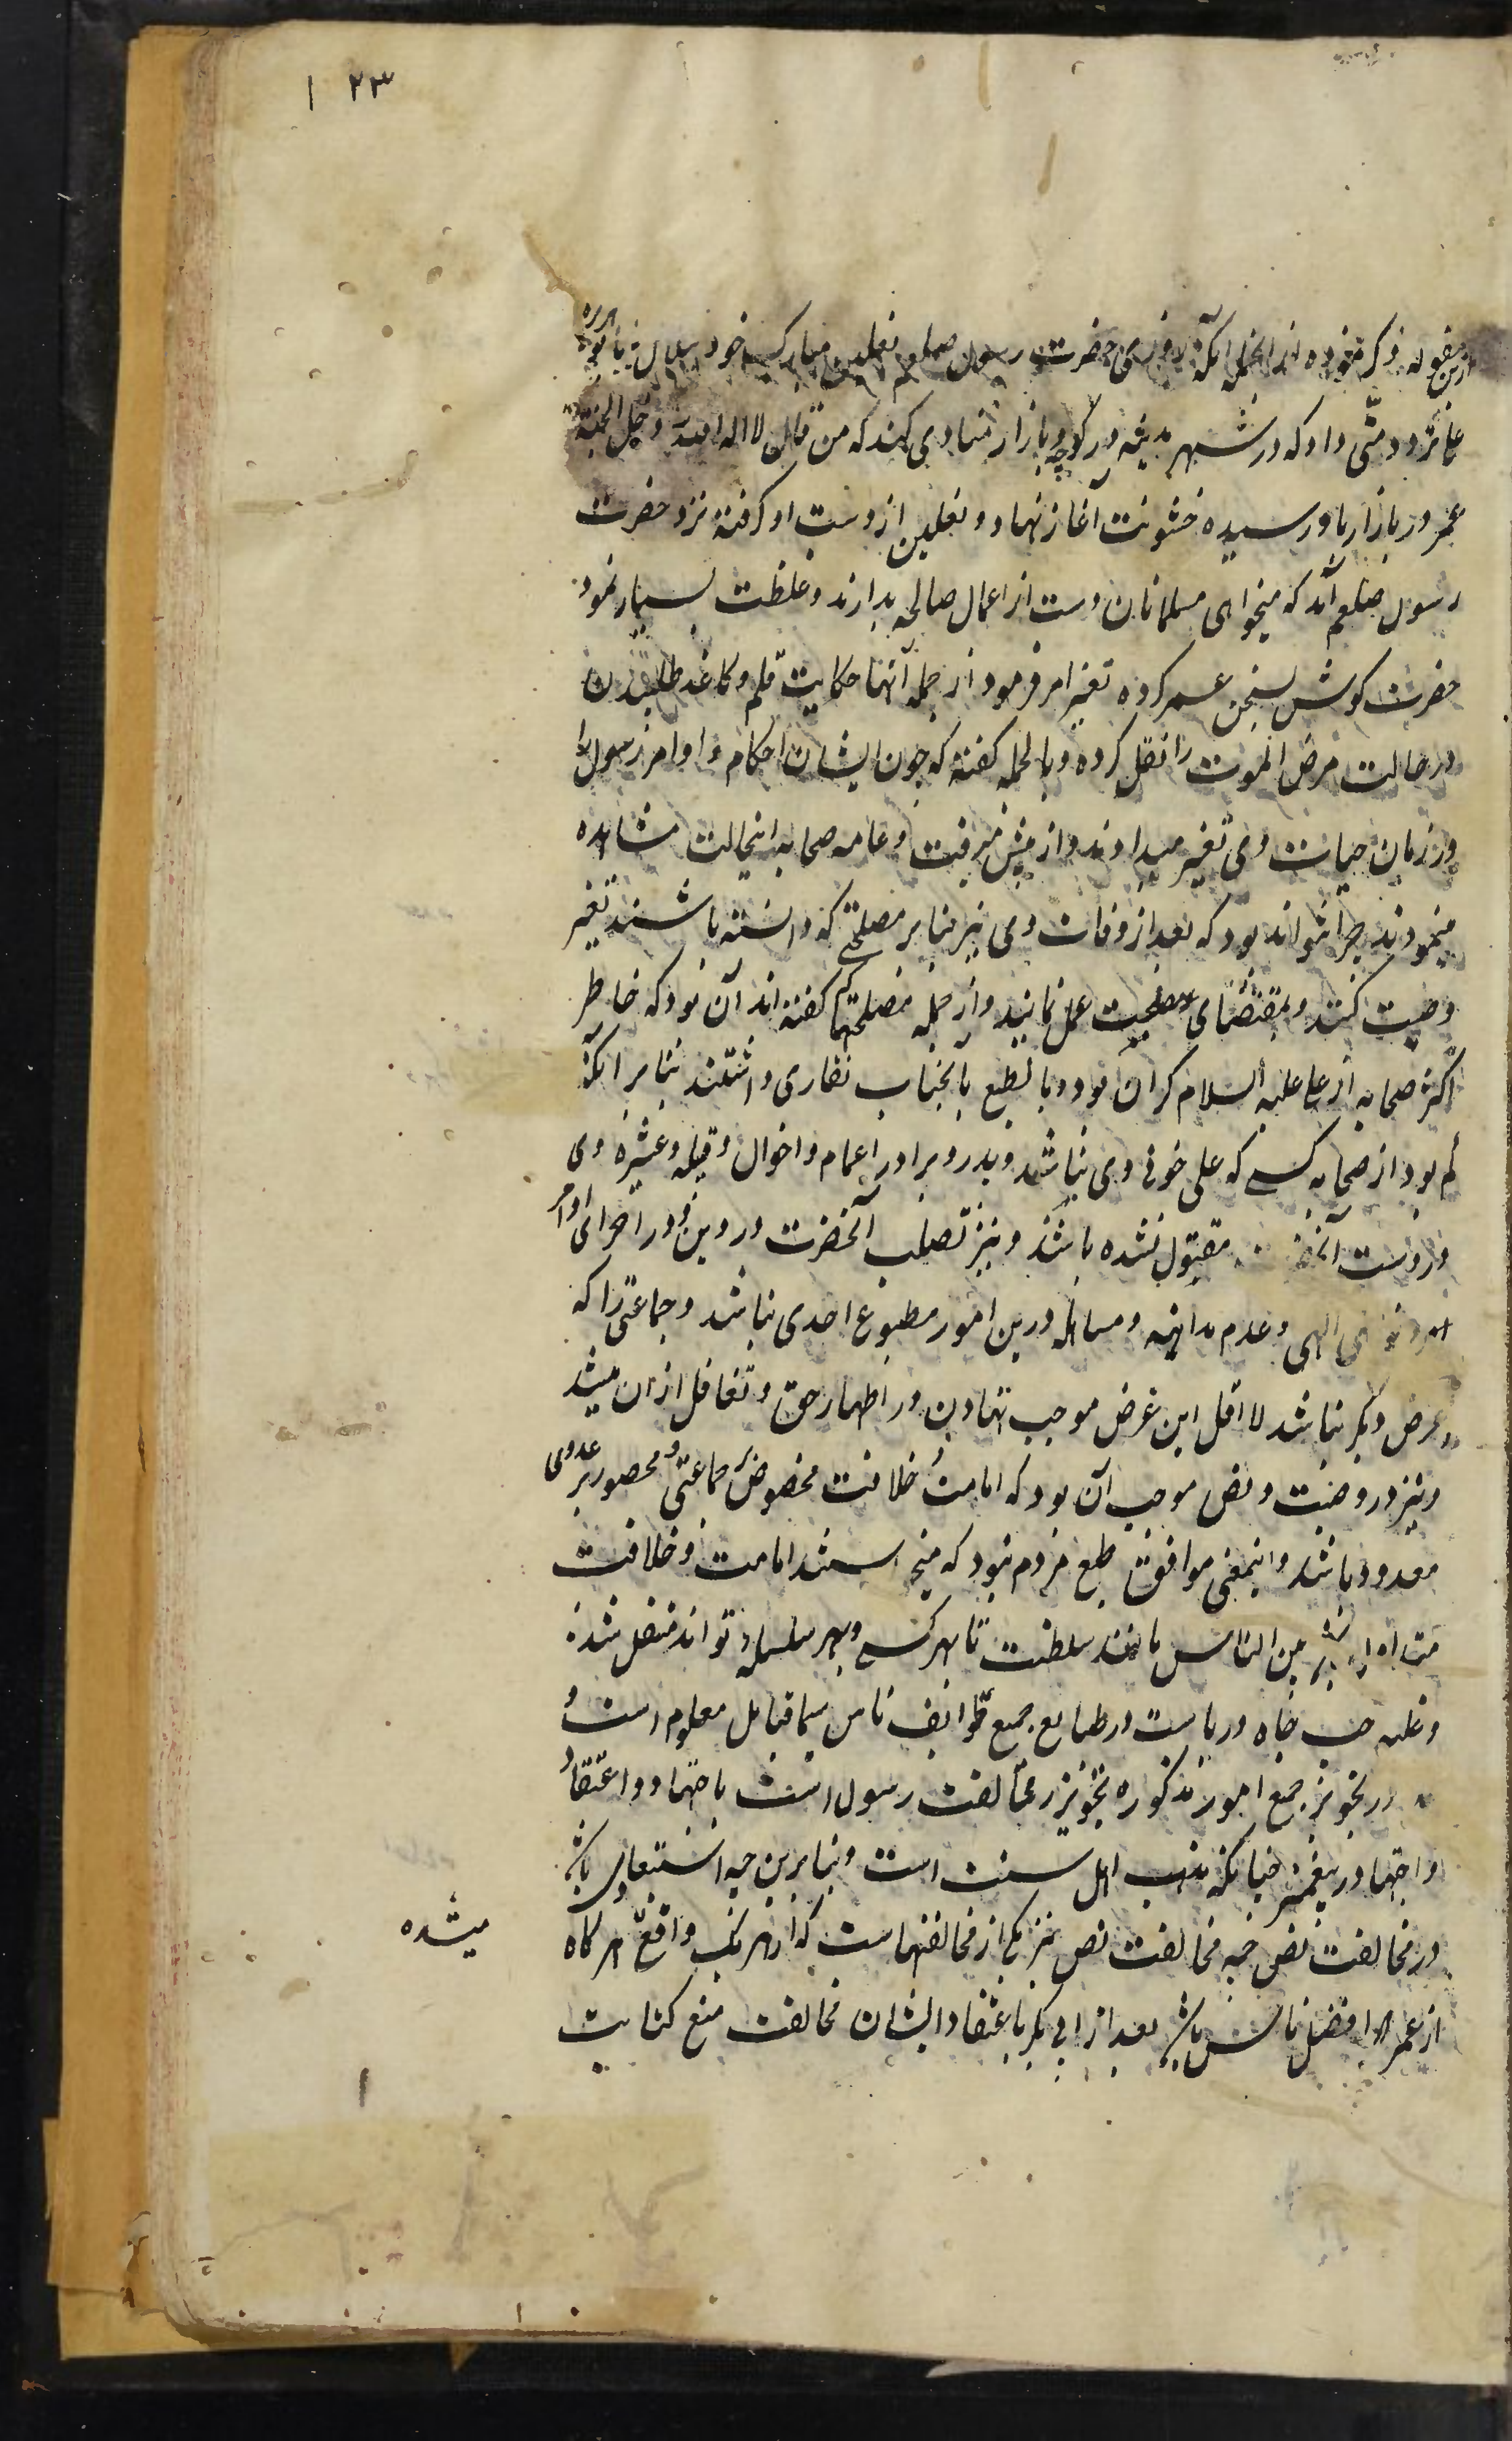 ۱۲۳
ازین مقوله ذکر نموده از انجمله آنکه روزی حضرت رسول صلعم نعلین مبارک خود بابو هریره
داد که در شهر مدینه در کوچه و بازار منادی کند که من قال لا اله الا الله دخل الجنة
عمر در بازار باو رسیده خشونت آغاز نهاد و نعلین از دست او کرفته نزد حضرت
رسول صلعم آمد که میخواهی مسلمانان دست از اعمال صالحه بدارند و غلظت بسیار نمود
حضرت کوش بسخن عمر کرده تغییر امر فرمود از جمله آنها حکایت قلم و کاغذ طلبیدن
در حالت مرض الموت را نقل کرده و بالجمله کفته که چون ایشان احکام و اوامر رسول را
در زمان حیات وی تغییر میدادند و از پیش میرفت و عامه صحابه اینحالت مشاهده
مینمودند چرا نتواند بود که بعد از وفات وی نیز بنا بر مصلحتی که دانسته باشند تغییر
وصیت کنند و بمقتضای مصلحت عمل نمایند و از جمله مصلحتها که کفته اند آن بود که خاطر
اکثر صحابه از علی علیه السلام کران بود و بالطبع بآنجناب نقاری داشتند بنا بر آنکه
کم بود از صحابه کسی که علی خونی وی نباشد و پدر و برادر و اعمام و اخوال و قبیله و عشیره وی
از دست آنحضرت مقتول نشده باشند و نیز تصلب آنحضرت در دین و در اجرای اوامر
و نواهی الهی و عدم مداهنه و مساهله درین امور مطبوع احدی نباشد و جماعتی را که
غرض دیکر نباشد لااقل این غرض موجب تهاون در اظهار حق و تغافل از ان میشد
و نیز در وصیت و نص موجب آن بود که امامت و خلافت مخصوص جماعتی و محصور بر عددی
معدود باشد و اینمعنی موافق طبع مردم نبود که میخواستند امامت و خلافت
بین الناس مانند سلطنت تا بهر کسی و بهر سلسله تواند منتقل شد
و غلبه حب جاه و ریاست در طبایع جمیع طوایف ناس سیما قبایل معلوم است و
در تجویز جمیع امور مذکوره تجویز مخالفت رسول است باجتهاد و اعتقاد
و اجتهاد پیغمبر چنانکه مذهب اهل سنت است و بنابرین چه استبعاد باشد
در مخالفت نص چه مخالفت نص نیز یکی از مخالفتهاست که از هر یک واقع هرکاه
میشده
از عمر که افضل ناس باشد بعد از ابی بکر باعتقاد ایشان مخالفت منع کتابت